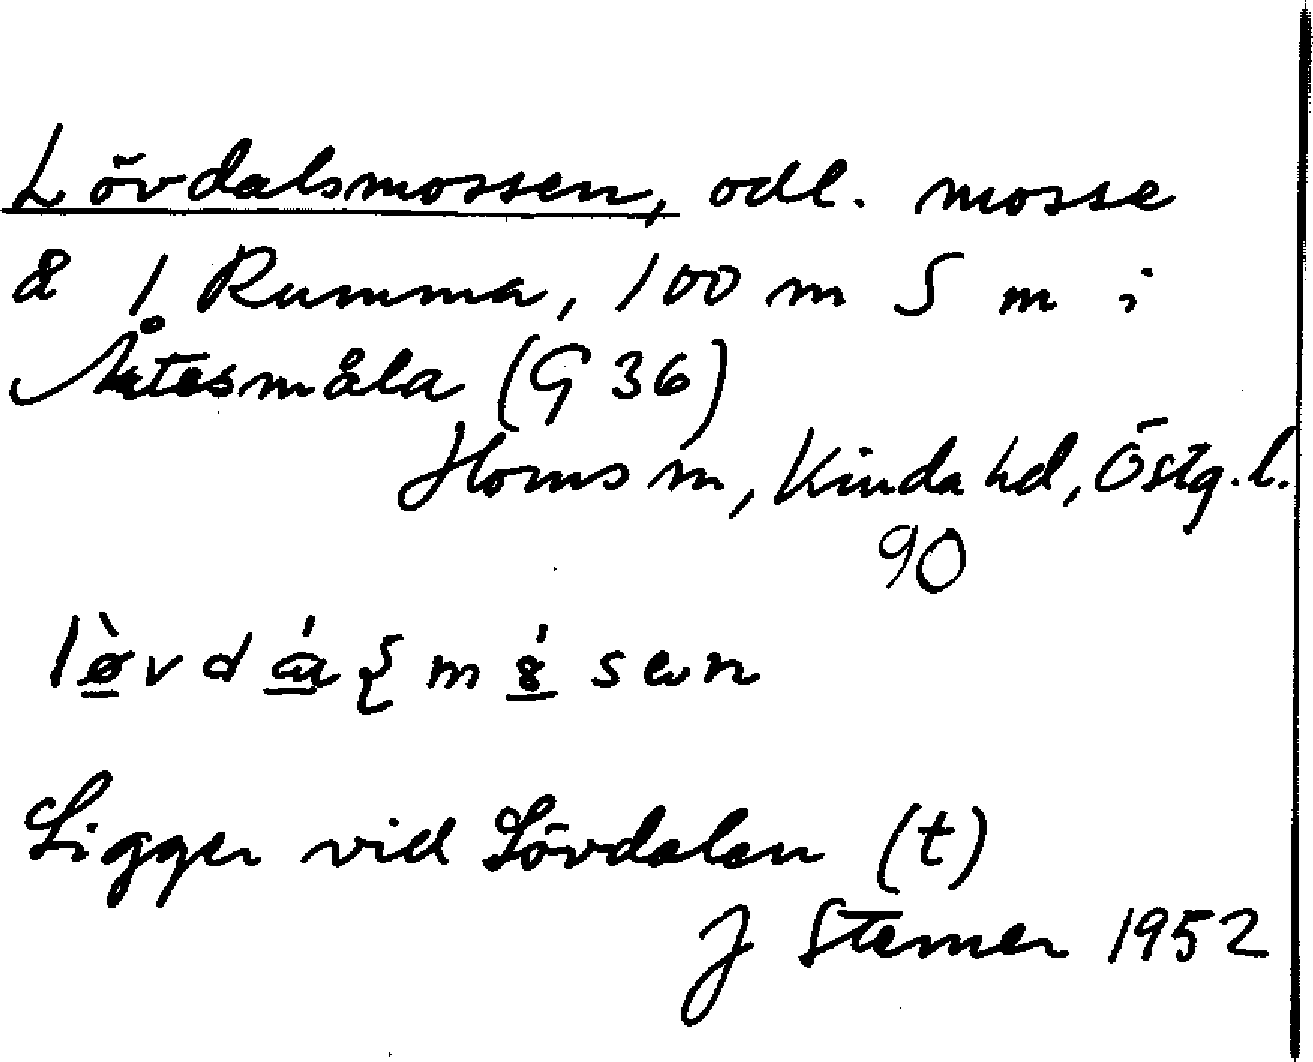 Lövdalsmossen, odl. mosse
å 1 Rumma, 100 m S m i
Åtesmåla (G 36)
Horns sn, Kinda hd, Östg. l.
90
Ligger vid Lövdalen (t)
J Sterner 1952